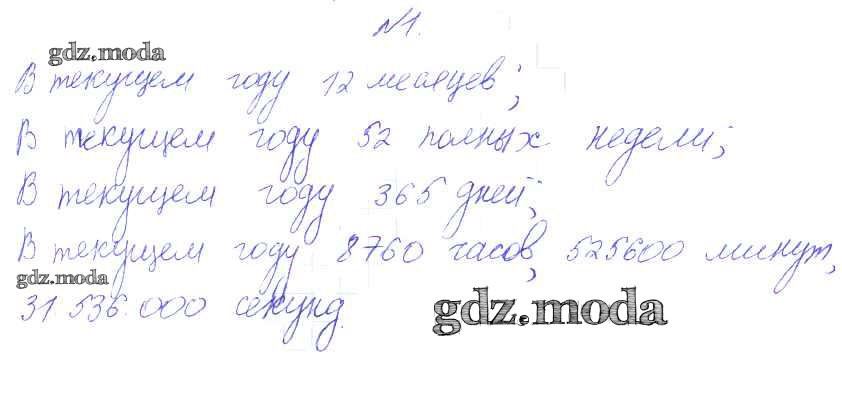 №1.
gdz.moda
В текущем году 12 месяцев;
В текущем году 52 полных недели;
В текущем году 365 дней;
В текущем году 8760 часов, 525600 минут,
gdz.moda
31 536.000 секунд.
gdz.moda